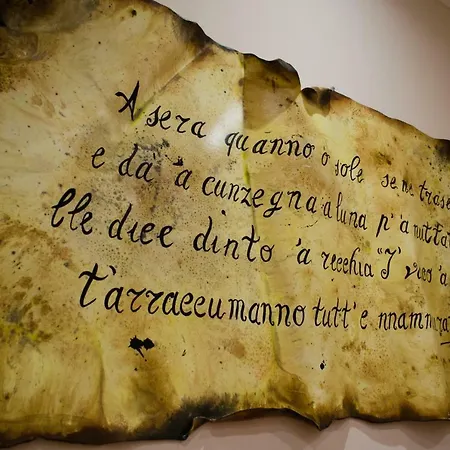 A sera quanno o sole se ne trase
e dà 'a cunzegna a luna p' a nuttat
lle dice dinto 'a recchia "I' vaco 'a
t'arraccumanno tutt' e nnammurat